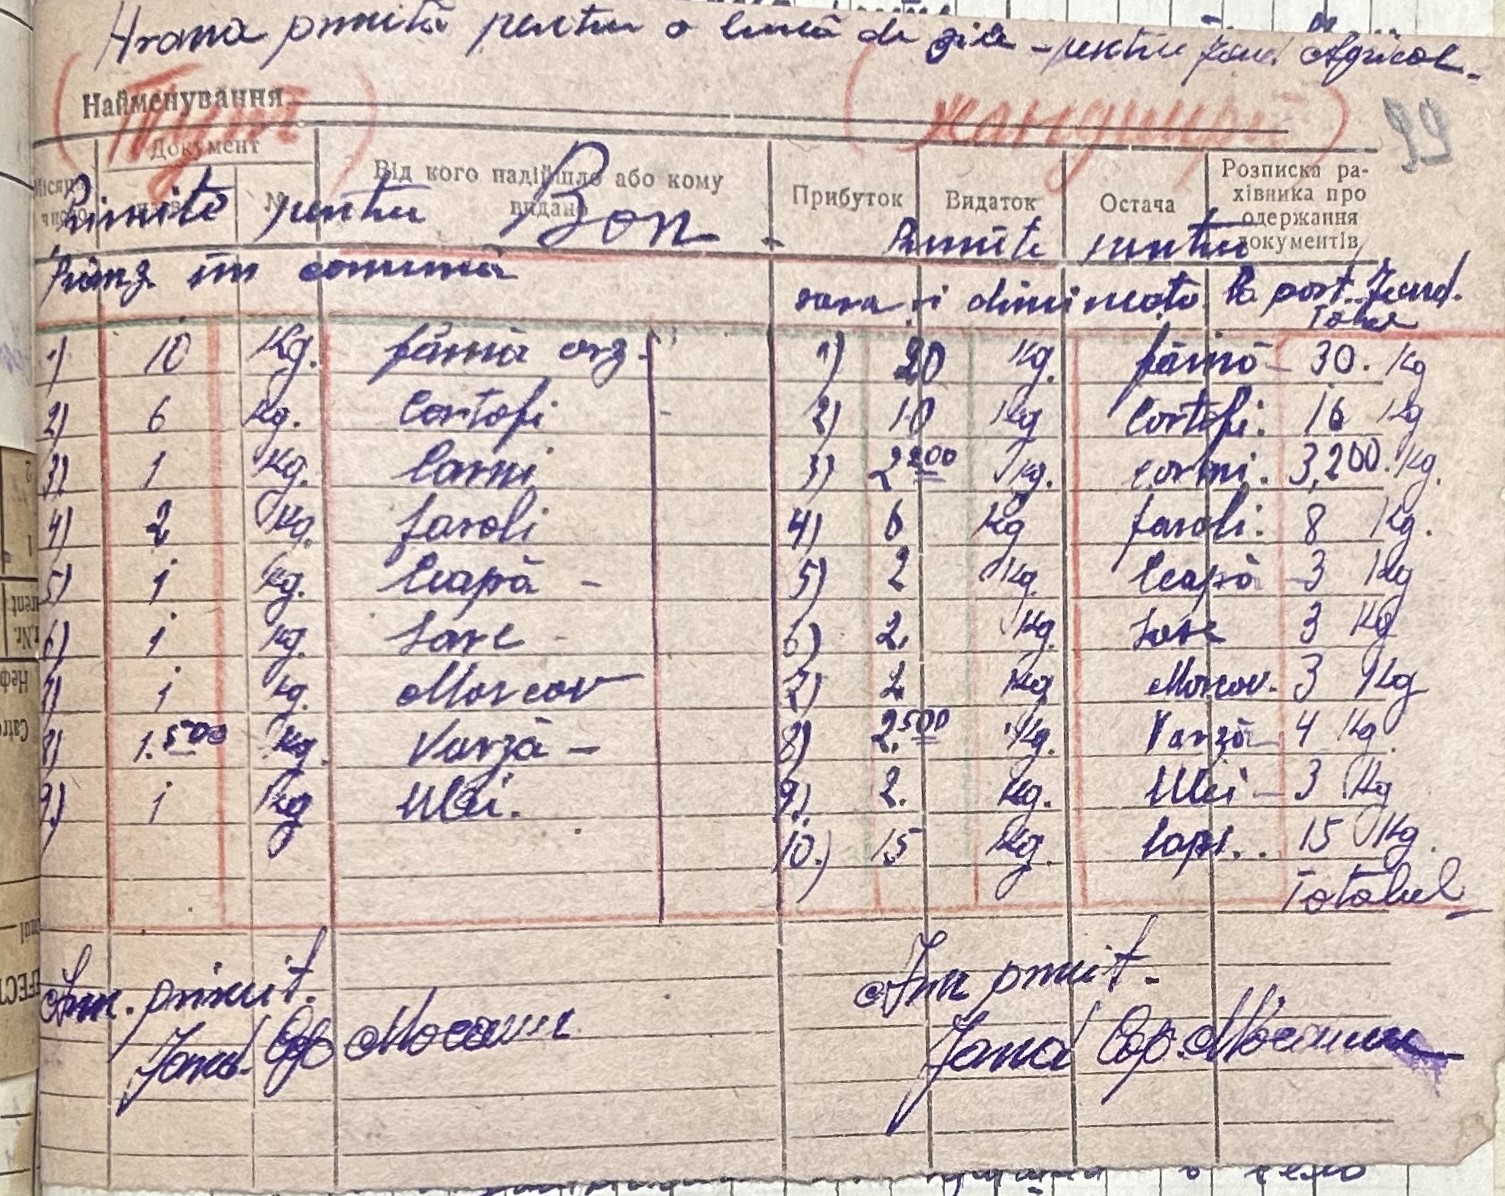 Hrana primită pentru o lună de zile - pentru Jand. Agricol -
Найменування
(Пут) (жандирі)
22
Місяць і число
Документ
№
Від кого надійшло або кому видано
Прибуток
Видаток
Остача
Розписка рахівника про одержання документів
Primite pentru Bon - Primite pentru
Prânz în comună
sara și dimineața la post. Jand.
Total
1) 10 Kg. făină orz - 1) 20 Kg. făină - 30. Kg
2) 6 Kg. Cartofi - 2) 10 Kg Cartofi. 16 Kg
3) 1 Kg. Carni 3) 2200 Kg. Carni. 3,200. Kg.
4) 2 Kg. fasoli 4) 6 Kg fasoli. 8 Kg.
5) 1 Kg. Ceapă - 5) 2 Kg. Ceapă - 3 Kg
6) 1 Kg. Sare - 6) 2. Kg. Sare 3 Kg
7) 1 Kg. Morcov 7) 2 Kg Morcov. 3 Kg
8) 1.500 Kg. Varză - 8) 2.500 Kg. Varză - 4 Kg.
9.) 1 Kg Ulei. 9.) 2. Kg. Ulei - 3 Kg
10.) 15 Kg. 15 Kg.
Totalul
Am. primit. Am primit.
Jand. Cap Mocanu Jand Cap. Mocanu